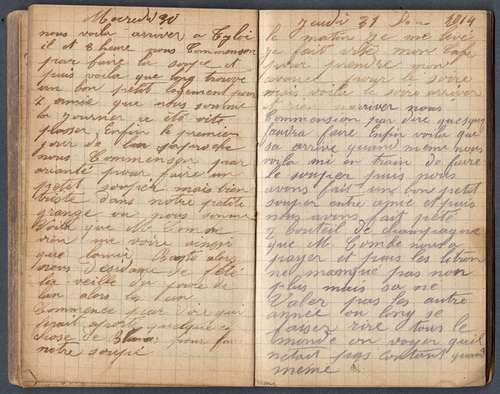 Mecredi 30
nous voila arriver a Egloi
il et 8 heure nous Commenson
par faire la soupe et
puis voila que long trouve
un bon petit logement pour
2 amie que nous somme
la journer a été vite
passer Enfin le premier
jour de lan saproche
nous Commenson par
pour faire un
petit souper mais bien
triste dans notre petite
grange ou nous somme
Voila que M. Com
vien me voire ainsi
que Louis alors
la veille du jour de
lan alors la
Commence par dire qui
ferait quelque
chose de Blanc pour
notre soupé
Jeudi 31 1914
le matin je me levé
je fait vite mon Cafe
pour prendre mon
pour le soire
mais voila le soire arriver
et rien narriver nous
Commension par dire quesquil
faudra faire Enfin voila que
sa arrive quand meme nous
voila mi en train de faire
le souper puis nous
avons fait un bon petit
souper entre amie et puis
nous avons fait peté
2 bouteil de champagne
que M. Combe nous a
payer et puis les
ne manque pas non
plus mais sa ne
Valer pas les autre
année ou long se
faiser rire tous le
monde on voyer quil
nétait pas contant quand
meme